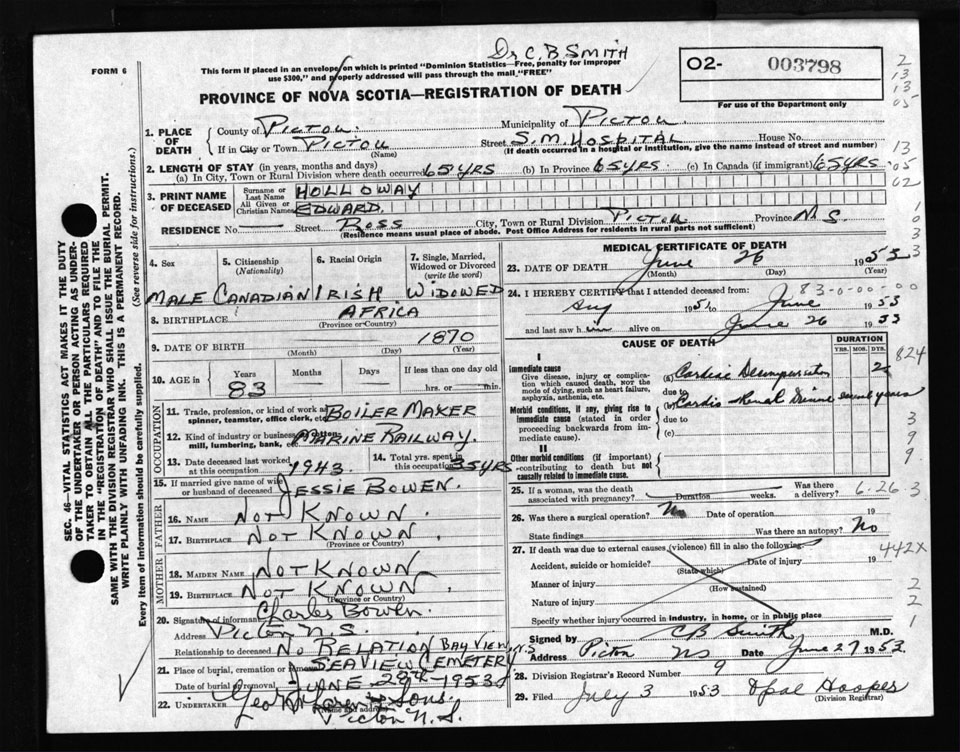 Dr C. B. SMITH
FORM 6
This form if placed in an envelope on which is printed "Dominion Statistics—Free, penalty for improper
use $300," and properly addressed will pass through the mail "FREE"
O2- 003798
For use of the Department only
PROVINCE OF NOVA SCOTIA—REGISTRATION OF DEATH
2
13
13
05
13
05
02
1
0
3
3
1. PLACE OF DEATH
County of PICTOU Municipality of PICTOU
If in City or Town PICTOU Street S. M. HOSPITAL House No.
(Name) (If death occurred in a hospital or institution, give the name instead of street and number)
2. LENGTH OF STAY (in years, months and days)
(a) In City, Town or Rural Division where death occurred 65 YRS (b) In Province 65 YRS (c) In Canada (if immigrant) 65 YRS
3. PRINT NAME OF DECEASED
Surname or Last Name HOLLOWAY
All Given or Christian Names EDWARD
RESIDENCE No. Street ROSS City, Town or Rural Division PICTOU Province N. S.
(Residence means usual place of abode. Post Office Address for residents in rural parts not sufficient)
4. Sex
5. Citizenship (Nationality)
6. Racial Origin
7. Single, Married, Widowed or Divorced (write the word)
MALE CANADIAN IRISH WIDOWED
8. BIRTHPLACE AFRICA
(Province or Country)
9. DATE OF BIRTH 1870
(Month) (Day) (Year)
10. AGE in Years Months Days If less than one day
83 hrs. or min.
OCCUPATION
11. Trade, profession or kind of work as BOILER MAKER
spinner, teamster, office clerk, etc.
12. Kind of industry or business MARINE RAILWAY.
mill, lumbering, bank, etc.
13. Date deceased last worked at this occupation 1943.
14. Total yrs. spent in this occupation 35 YRS
15. If married give name of wife or husband of deceased JESSIE BOWEN.
FATHER
16. NAME NOT KNOWN
17. BIRTHPLACE NOT KNOWN.
(Province or Country)
MOTHER
18. MAIDEN NAME NOT KNOWN
19. BIRTHPLACE NOT KNOWN.
(Province or Country)
20. Signature of informant Charles Bowen.
Address PICTOU N.S.
Relationship to deceased NO RELATION BAY VIEW N.S
21. Place of burial, cremation or removal SEAVIEW CEMETERY
Date of burial or removal JUNE 28TH 1953
22. UNDERTAKER Sons.
(Name and address) Pictou N.S.
MEDICAL CERTIFICATE OF DEATH
23. DATE OF DEATH June 26 1953
(Month) (Day) (Year)
83-0-00-00
24. I HEREBY CERTIFY that I attended deceased from:
Aug 1951 to June 1953
and last saw him alive on June 26 1953
CAUSE OF DEATH
DURATION
YRS. MOS. DYS.
I
Immediate cause
Give disease, injury or complication which caused death, NOT the mode of dying, such as heart failure, asphyxia, asthenia, etc.
(a) Cardiac
due to
Morbid conditions, if any, giving rise to immediate cause (stated in order proceeding backwards from immediate cause).
(b) Cardio-Renal several years
due to
(c)
II
Other morbid conditions (if important) contributing to death but not causally related to immediate cause.
824
3
9
9.
25. If a woman, was the death associated with pregnancy? Duration weeks. Was there a delivery?
6.26 3
26. Was there a surgical operation? No Date of operation 19
State findings Was there an autopsy? No
27. If death was due to external causes (violence) fill in also the following:
442X
Accident, suicide or homicide? Date of injury 19
(State which)
Manner of injury
(How sustained)
Nature of injury
Specify whether injury occurred in industry, in home, or in public place
2
2
1
Signed by CB Smith M.D.
Address Pictou NS Date June 27 1953
28. Division Registrar's Record Number 9
29. Filed July 3 1953 Opal Hooper
(Division Registrar)
SEC. 46—VITAL STATISTICS ACT MAKES IT THE DUTY
OF THE UNDERTAKER OR PERSON ACTING AS UNDERTAKER
TO OBTAIN ALL THE PARTICULARS REQUIRED
IN THE "REGISTRATION OF DEATH" AND TO FILE THE
SAME WITH THE DIVISION REGISTRAR WHO SHALL ISSUE THE BURIAL PERMIT.
WRITE PLAINLY WITH UNFADING INK. THIS IS A PERMANENT RECORD.
Every item of information should be carefully supplied. (See reverse side for instructions.)